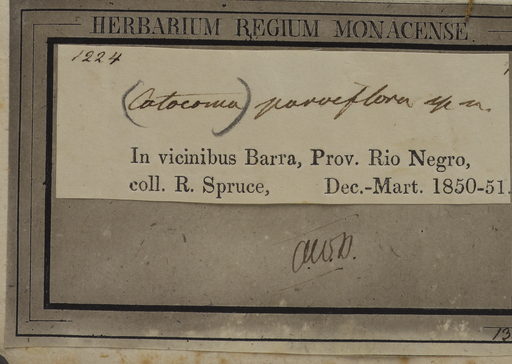 HERBARIUM REGIUM MONACENSE.
1224
(Catocoma) parviflora sp n.
In vicinibus Barra, Prov. Rio Negro,
coll. R. Spruce, Dec.-Mart. 1850-51.
13